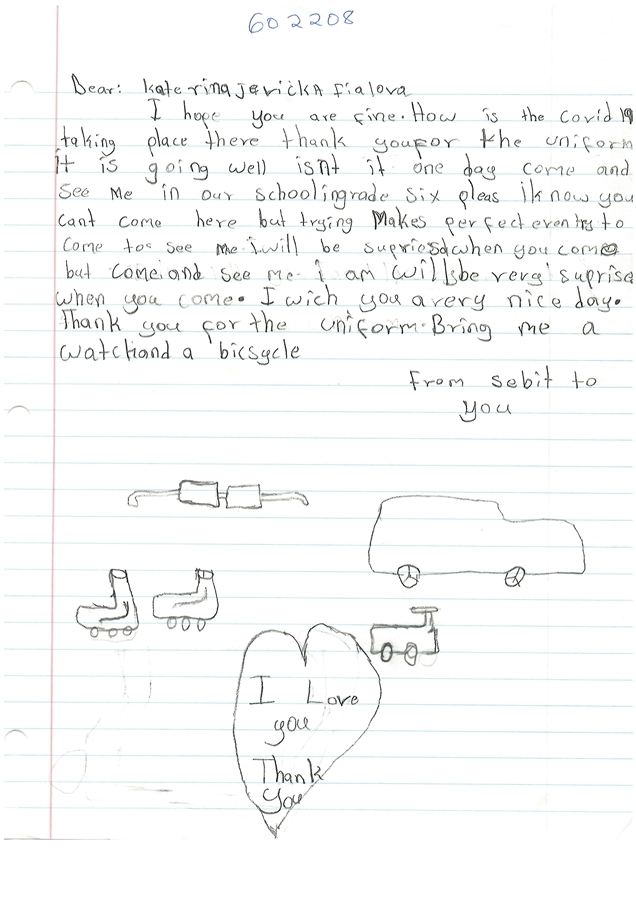 602208
Dear: Katerina Jericka fialova
I hope you are fine. How is the covid 19
taking place there thank youfor the uniform
it is going well isnt it one day come and
see Me in our schoolingrade six pleas iknow you
cant come here but trying Makes perfect even try to
come to see me i will be supriesd when you come
but come and see me. i am will be very suprise
when you come. I wich you a very nice day.
Thank you for the uniform. Bring me a
watchand a bicsycle
From sebit to
you
I Love
you
Thank
You